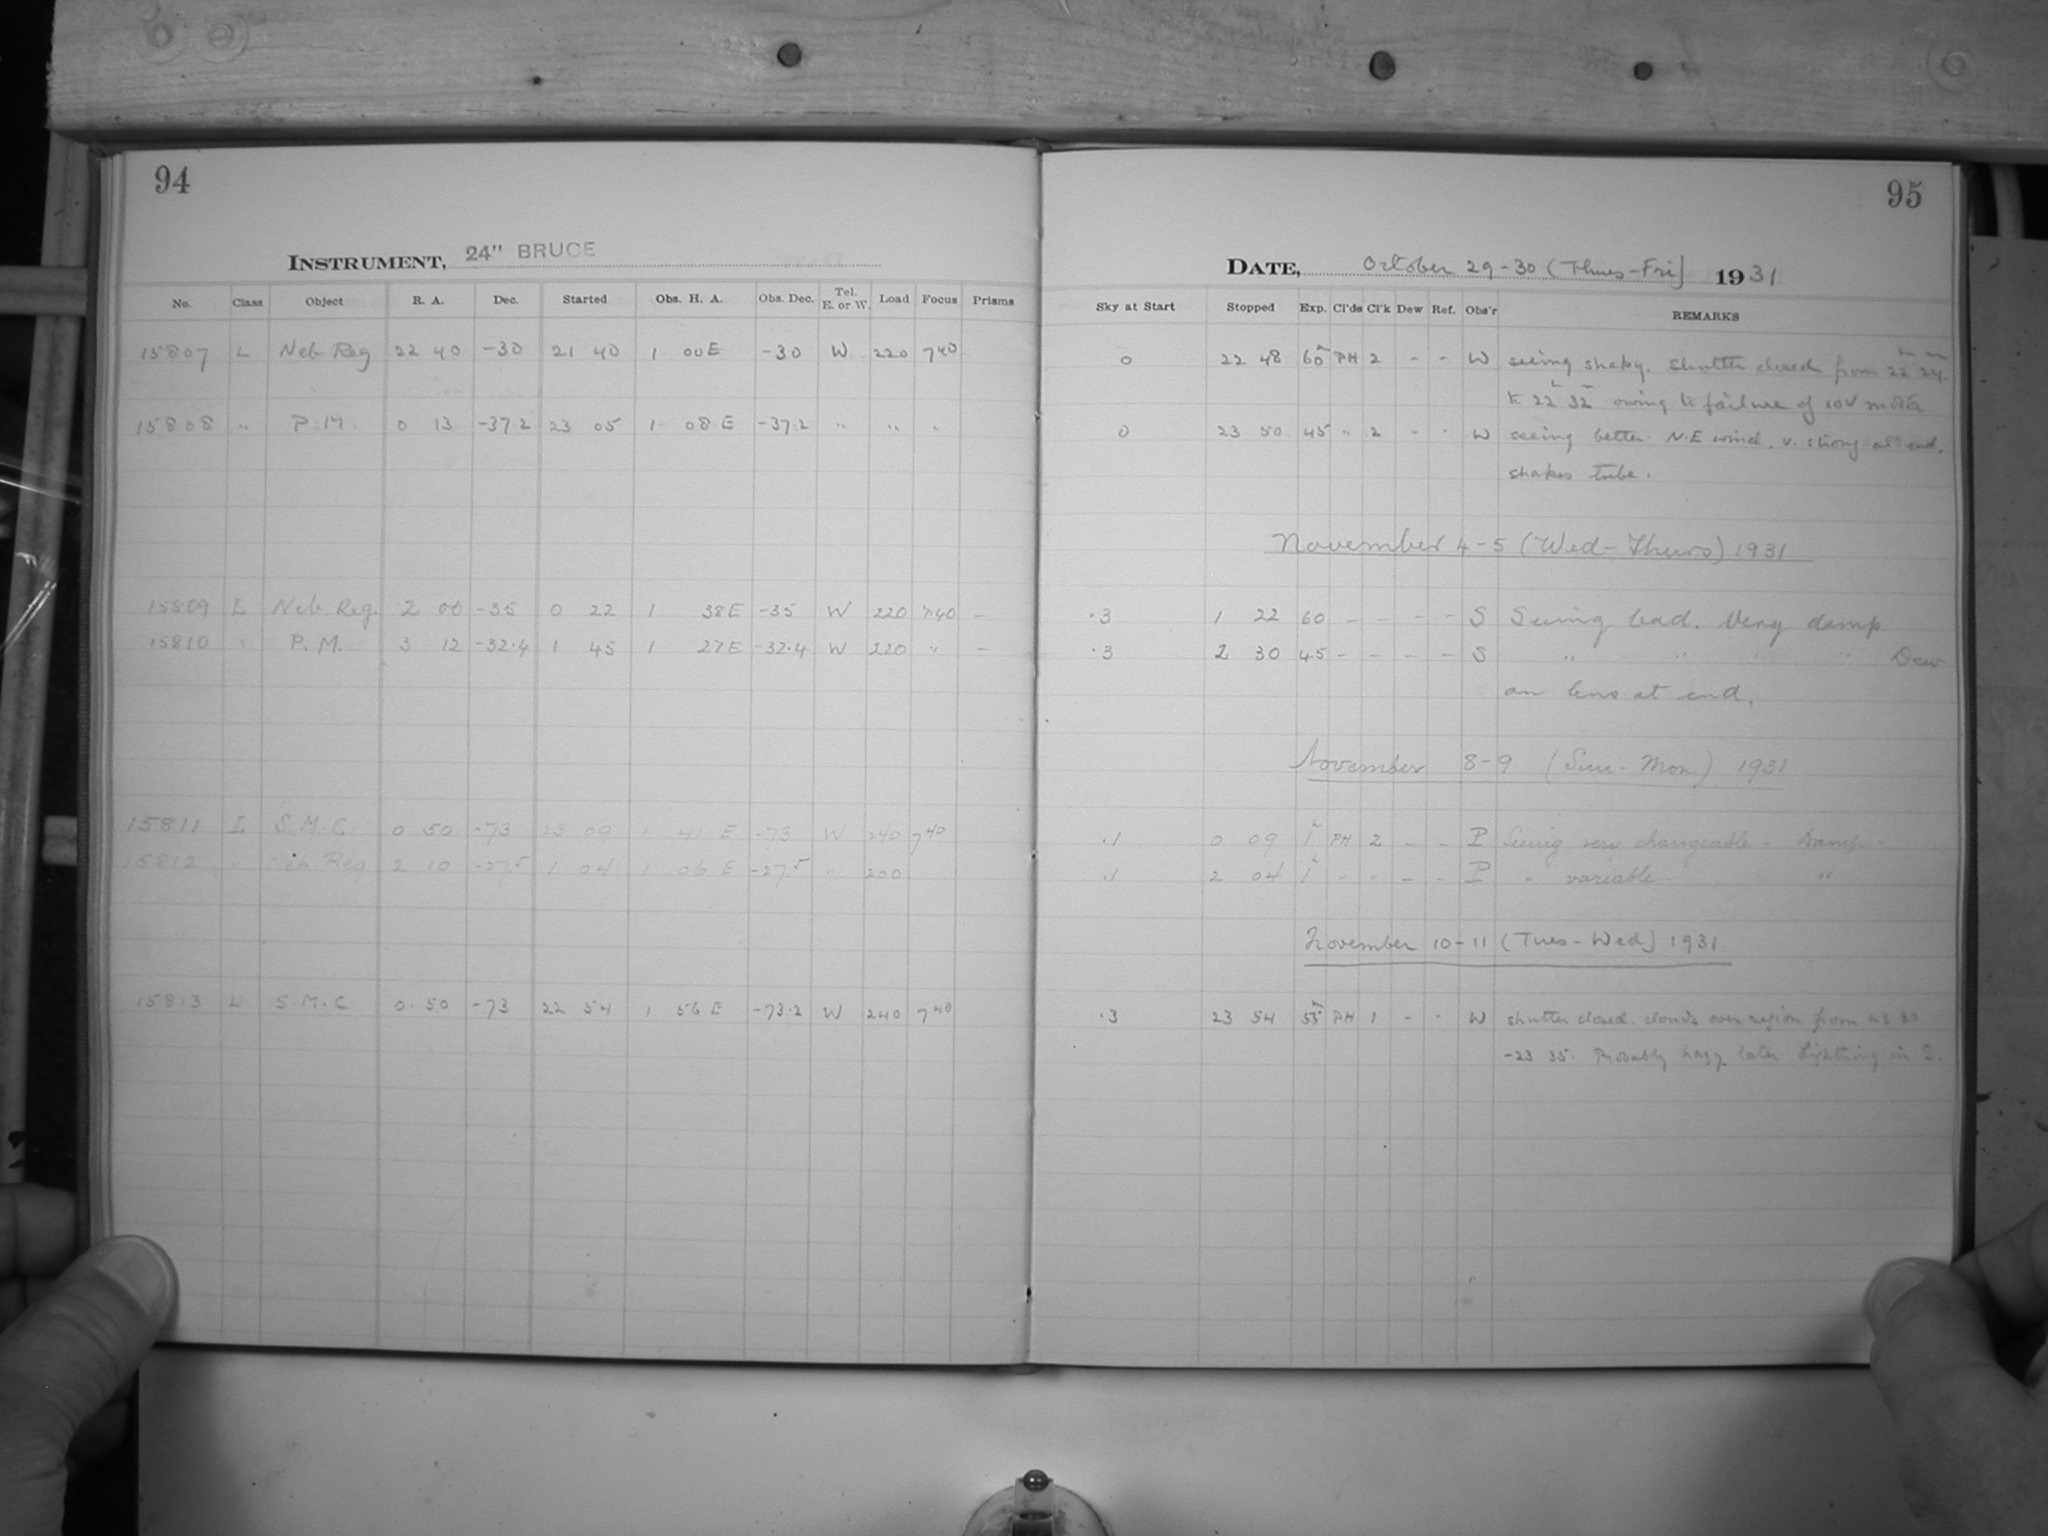 94
INSTRUMENT, 24" BRUCE
No. Class Object R. A. Dec. Started Obs. H. A. Obs. Dec. Tel. E. or W. Load Focus Prisms
15807 L Neb Reg 22 40 -30 21 40 1 00 E -30 W 220 7 40
15808 " P.M. 0 13 -37.2 23 05 1 08 E -37.2 " " "
15809 L Neb. Reg. 2 00 -35 0 22 1 38 E -35 W 220 7.40 -
15810 " P. M. 3 12 -32.4 1 45 1 27 E -32.4 W 220 " -
15811 L S.M.C. 0 50 -73 23 09 1 41 E -73 W 240 7 40
15812 " Neb Reg 2 10 -27.5 1 04 1 06 E -27.5 " 200
15813 L S.M.C 0 50 -73 22 54 1 56 E -73.2 W 240 7 40
95
DATE, October 29-30 (Thurs-Fri) 1931
Sky at Start Stopped Exp. Cl'ds Cl'k Dew Ref. Obs'r REMARKS
0 22 48 60m PH 2 - - W seeing shaky. shutter closed from 22h 24m
to 22h 32m owing to failure of 10V motor
0 23 50 45 " 2 - - W seeing better. N.E wind. v. strong at end.
shakes tube.
November 4-5 (Wed-Thurs) 1931
.3 1 22 60 - - - - S Seeing bad. Very damp
.3 2 30 45 - - - - S " " " " Dew
on lens at end.
November 8-9 (Sun-Mon) 1931
.1 0 09 1h PH 2 - - P Seeing very changeable - Damp -
.1 2 04 1h - - - - P " variable - "
November 10-11 (Tues-Wed) 1931
.3 23 54 55m PH 1 - - W shutter closed. clouds over region from 23 30
-23 35. Probably hazy later. Lightning in S.